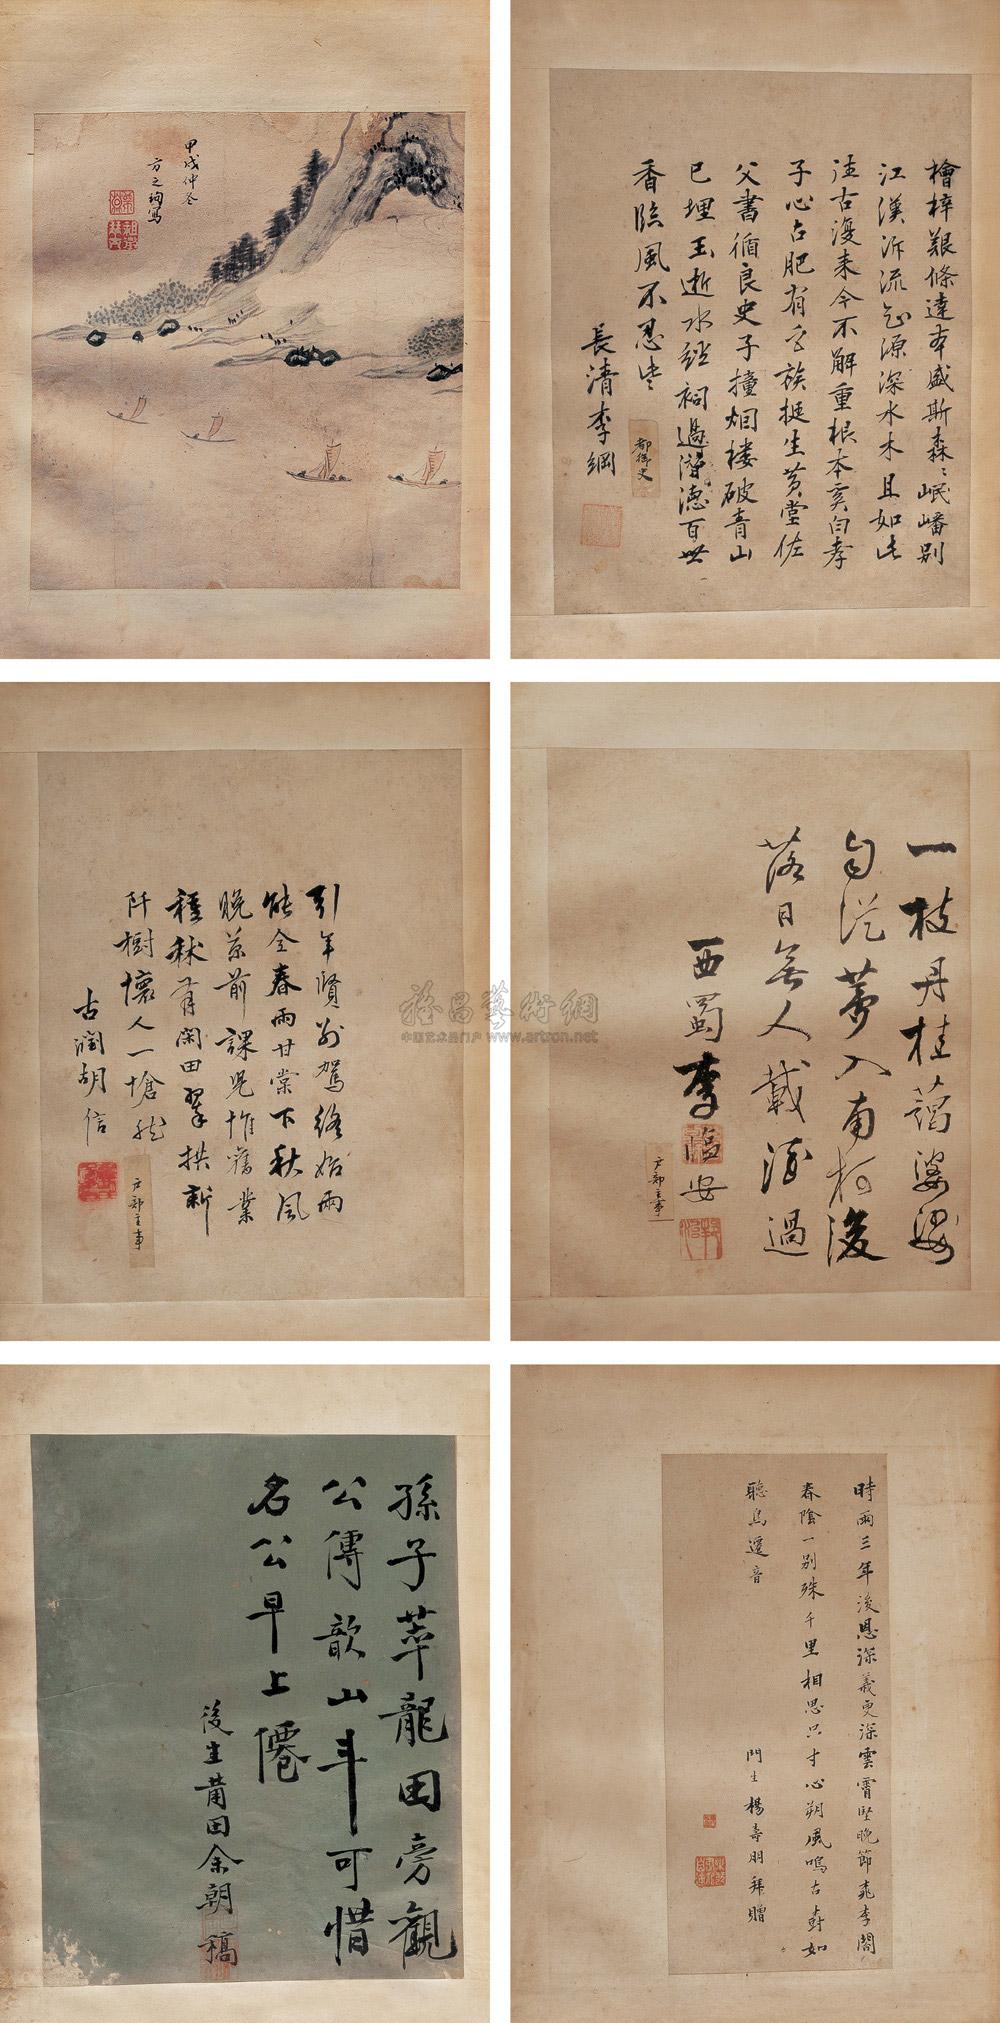 甲戌仲冬
方之珣寫
檜梓艱條達本盛斯森森岷嶓別
江漢泝流知源深水木且如此
注古漫來今不解重根本奚自孝
子心古肥有名族挺生黃堂佐
父書循良史子撞烟樓破青山
已埋玉逝水經祠過潛德百世
香臨風不忍
長清李綱
都御史
引年賢別駕終始兩
能全春雨甘棠下秋風
晚前課兒惟舊業
種秫有閑田翠拱新
阡樹懷人一愴然
古潤胡信
戶部主事
一枝丹桂藹婆娑
自從夢入南柯後
落日無人載酒過
西蜀李臨安
戶部主事
雅昌藝術網
中国艺术品门户 www.artron.net
孫子莘龍田旁觀
公傳歆山斗可惜
名公早上僊
後生莆田余朝稿
時雨三年後恩深義更深雲霄堅晚節桃李閣
春陰一別殊千里相思只寸心朔風鳴古樹如
聽鳥遷音
門生楊壽朋拜贈